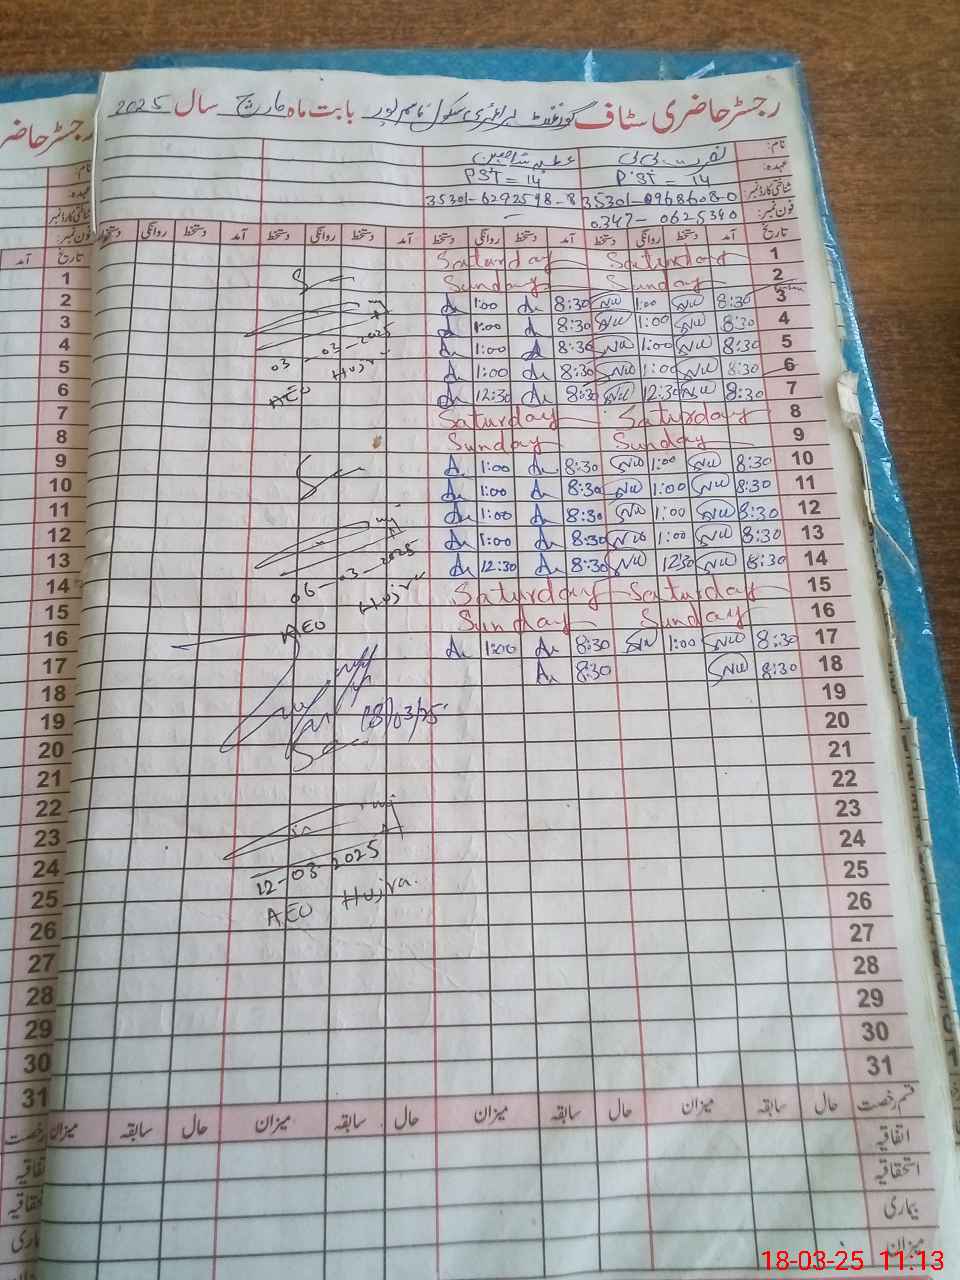 رجسٹر حاضری سٹاف گورنمنٹ پرائمری سکول قاسم پور بابت ماہ مارچ سال 2025
رجسٹر حاضر
نام: نفیس بی بی
عہدہ: PST = 14 PST = 14
شناختی کارڈ نمبر: 35301-0968608-0 35301-6292598-8
فون نمبر: 0347-0625340
تاریخ آمد دستخط روانگی دستخط آمد دستخط روانگی دستخط آمد دستخط روانگی دستخط آمد دستخط روانگی
1 Saturday Saturday
2 Sunday Sunday
3 8:30 1:00 8:30 1:00
4 8:30 1:00 8:30 1:00
5 8:30 1:00 8:30 1:00
6 8:30 1:00 8:30 1:00
7 8:30 12:30 8:30 12:30
8 Saturday Saturday
9 Sunday Sunday
10 8:30 1:00 8:30 1:00
11 8:30 1:00 8:30 1:00
12 8:30 1:00 8:30 1:00
13 8:30 1:00 8:30 1:00
14 8:30 12:30 8:30 12:30
15 Saturday Saturday
16 Sunday Sunday
17 8:30 1:00 8:30 1:00
18 8:30 8:30
19
20
21
22
23
24
25
26
27
28
29
30
31
03-03-2025
AEO Hujra
06-03-2025
AEO Hujra
18/03/25
12-03-2025
AEO Hujra.
قسم رخصت حال سابقہ میزان حال سابقہ میزان حال سابقہ میزان حال سابقہ میزان
اتفاقیہ
استحقاقیہ
بیماری
میزان
نام:
عہدہ:
شناختی کارڈ نمبر
فون نمبر:
تاریخ آمد
1
2
3
4
5
6
7
8
9
10
11
12
13
14
15
16
17
18
19
20
21
22
23
24
25
26
27
28
29
30
31
18-03-25 11:13